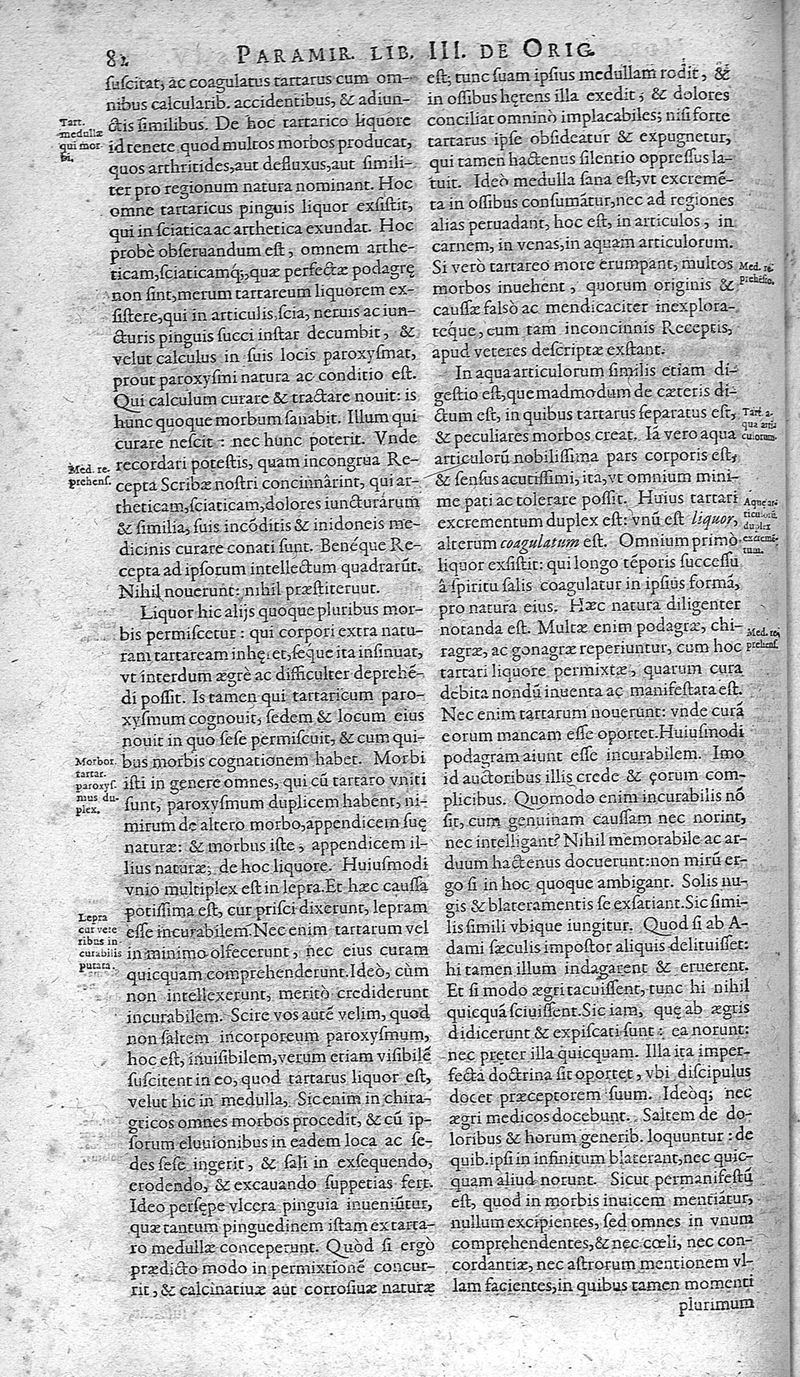 82 PARAMIR. LIB. III. DE ORIG.
ſuſcitat, ac coagulatus tartarus cum om-
nibus calcularib. accidentibus, & adiun-
ctis ſimilibus. De hoc tartarico liquore
id tenete quod multos morbos producat,
quos arthritides, aut defluxus, aut ſimili-
ter pro regionum natura nominant. Hoc
omne tartaricus pinguis liquor exſiſtit,
qui in ſciatica ac arthetica exundat. Hoc
probè obſeruandum eſt, omnem arthe-
ticam, ſciaticamq;, quæ perfectæ podagrę
non ſint, merum tartareum liquorem ex-
ſiſtere, qui in articulis, ſcia, neruis ac iun-
cturis pinguis ſucci inſtar decumbit, &
velut calculus in ſuis locis paroxyſmat,
prout paroxyſmi natura ac conditio eſt.
Qui calculum curare & tractare nouit: is
hunc quoque morbum ſanabit. Illum qui
curare neſcit: nec hunc poterit. Vnde
recordari poteſtis, quam incongrua Re-
cepta Scribæ noſtri concinnârint, qui ar-
theticam, ſciaticam, dolores iuncturárum
& ſimilia, ſuis incóditis & inidoneis me-
dicinis curare conati ſunt. Benéque Re-
cepta ad ipſorum intellectum quadrarūt.
Nihil nouerunt: nihil præſtiteruut.
Liquor hic alijs quoque pluribus mor-
bis permiſcetur: qui corpori extra natu-
ram tartaream inhęret, ſeque ita inſinuat,
vt interdum ægrè ac difficulter deprehē-
di poſſit. Is tamen qui tartaricum paro-
xyſmum cognouit, ſedem & locum eius
nouit in quo ſeſe permiſcuit, & cum qui-
bus morbis cognationem habet. Morbi
iſti in genere omnes, qui cū tartaro vniti
ſunt, paroxyſmum duplicem habent, ni-
mirum de altero morbo, appendicem ſuę
naturæ: & morbus iſte, appendicem il-
lius naturæ; de hoc liquore. Huiuſmodi
vnio multiplex eſt in lepra. Et hæc cauſſa
potiſſima eſt, cur priſci dixerunt, lepram
eſſe incurabilem. Nec enim tartarum vel
in minimo olfecerunt, nec eius curam
quicquam comprehenderunt. Ideò, cùm
non intellexerunt, meritò crediderunt
incurabilem. Scire vos autē velim, quod
non ſaltem incorporeum paroxyſmum,
hoc eſt, inuiſibilem, verum etiam viſibilē
ſuſcitent in eo, quod tartarus liquor eſt,
velut hic in medulla. Sic enim in chira-
gticos omnes morbos procedit, & cū ip-
ſorum eluuionibus in eadem loca ac ſe-
des ſeſe ingerit, & ſali in exſequendo,
erodendo, & excauando ſuppetias fert.
Ideo perſępe vlcera pinguia inueniūtur,
quæ tantum pinguedinem iſtam ex tarta-
ro medullæ conceperunt. Quòd ſi ergò
prædicto modo in permixtionē concur-
rit, & calcinatiuæ aut corroſiuæ naturæ
Tart.
medullæ
qui mor
bi.
Med. re.
prehenſ.
Morbor.
tartar.
paroxyſ.
mus du-
plex.
Lepra
cur vete
ribus in
curabilis
putata.
eſt; tunc ſuam ipſius medullam rodit, &
in oſſibus hęrens illa exedit, & dolores
conciliat omninò implacabiles; niſi forte
tartarus ipſe obſideatur & expugnetur,
qui tamen hactenus ſilentio oppreſſus la-
tuit. Ideò medulla ſana eſt, vt excremē-
ta in oſſibus conſumātur, nec ad regiones
alias peruadant, hoc eſt, in articulos, in
carnem, in venas, in aquam articulorum.
Si verò tartareo more erumpant, multos
morbos inuehent, quorum originis &
cauſſæ falsò ac mendicaciter inexplora-
tęque, cum tam inconcinnis Receptis,
apud veteres deſcriptæ exſtant.
In aqua articulorum ſimilis etiam di-
geſtio eſt, quemadmodum de cæteris di-
ctum eſt, in quibus tartarus ſeparatus eſt,
& peculiares morbos creat. Iā vero aqua
articulorū nobiliſſima pars corporis eſt,
& ſenſus acutiſſimi, ita, vt omnium mini-
me pati ac tolerare poſſit. Huius tartari
excrementum duplex eſt: vnū eſt liquor,
alterum coagulatum eſt. Omnium primò
liquor exſiſtit: qui longo tēporis ſucceſſu
â ſpiritu ſalis coagulatur in ipſius formā,
pro natura eius. Hæc natura diligenter
notanda eſt. Multæ enim podagræ, chi-
ragræ, ac gonagræ reperiuntur, cum hoc
tartari liquore permixtæ, quarum cura
debita nondū inuenta ac manifeſtata eſt.
Nec enim tartarum nouerunt: vnde curā
eorum mancam eſſe oportet. Huiuſmodi
podagram aiunt eſſe incurabilem. Imo
id auctoribus illis crede & eorum com-
plicibus. Quomodo enim incurabilis nō
ſit, cum genuinam cauſſam nec norint,
nec intelligant? Nihil memorabile ac ar-
duum hactenus docuerunt: non mirū er-
go ſi in hoc quoque ambigant. Solis nu-
gis & blateramentis ſe exſatiant. Sic ſimi-
lis ſimili vbique iungitur. Quod ſi ab A-
dami ſæculis impoſtor aliquis delituiſſet:
hi tamen illum indagarent & eruerent.
Et ſi modo ægri tacuiſſent, tunc hi nihil
quicquā ſciuiſſent. Sic iam, quę ab ægris
didicerunt & expiſcati ſunt: ea norunt:
nec pręter illa quicquam. Illa ita imper-
fectā doctrina ſit oportet, vbi diſcipulus
docet præceptorem ſuum. Ideòq; nec
ægri medicos docebunt. Saltem de do-
loribus & horum generib. loquuntur: de
quib. ipſi in infinitum blaterant, nec quic-
quam aliud norunt. Sicut permanifeſtū
eſt, quod in morbis inuicem mentiātur,
nullum excipientes, ſed omnes in vnum
comprehendentes, & nec cœli, nec con-
cordantiæ, nec aſtrorum mentionem vl-
lam facientes, in quibus tamen momenti
plurimum
Med. re.
prehēſio.
Tart. a-
qua arti
culorum.
Aquæ ar-
ticulorū
duplex
excremē-
tum.
Med. re.
prehenſ.